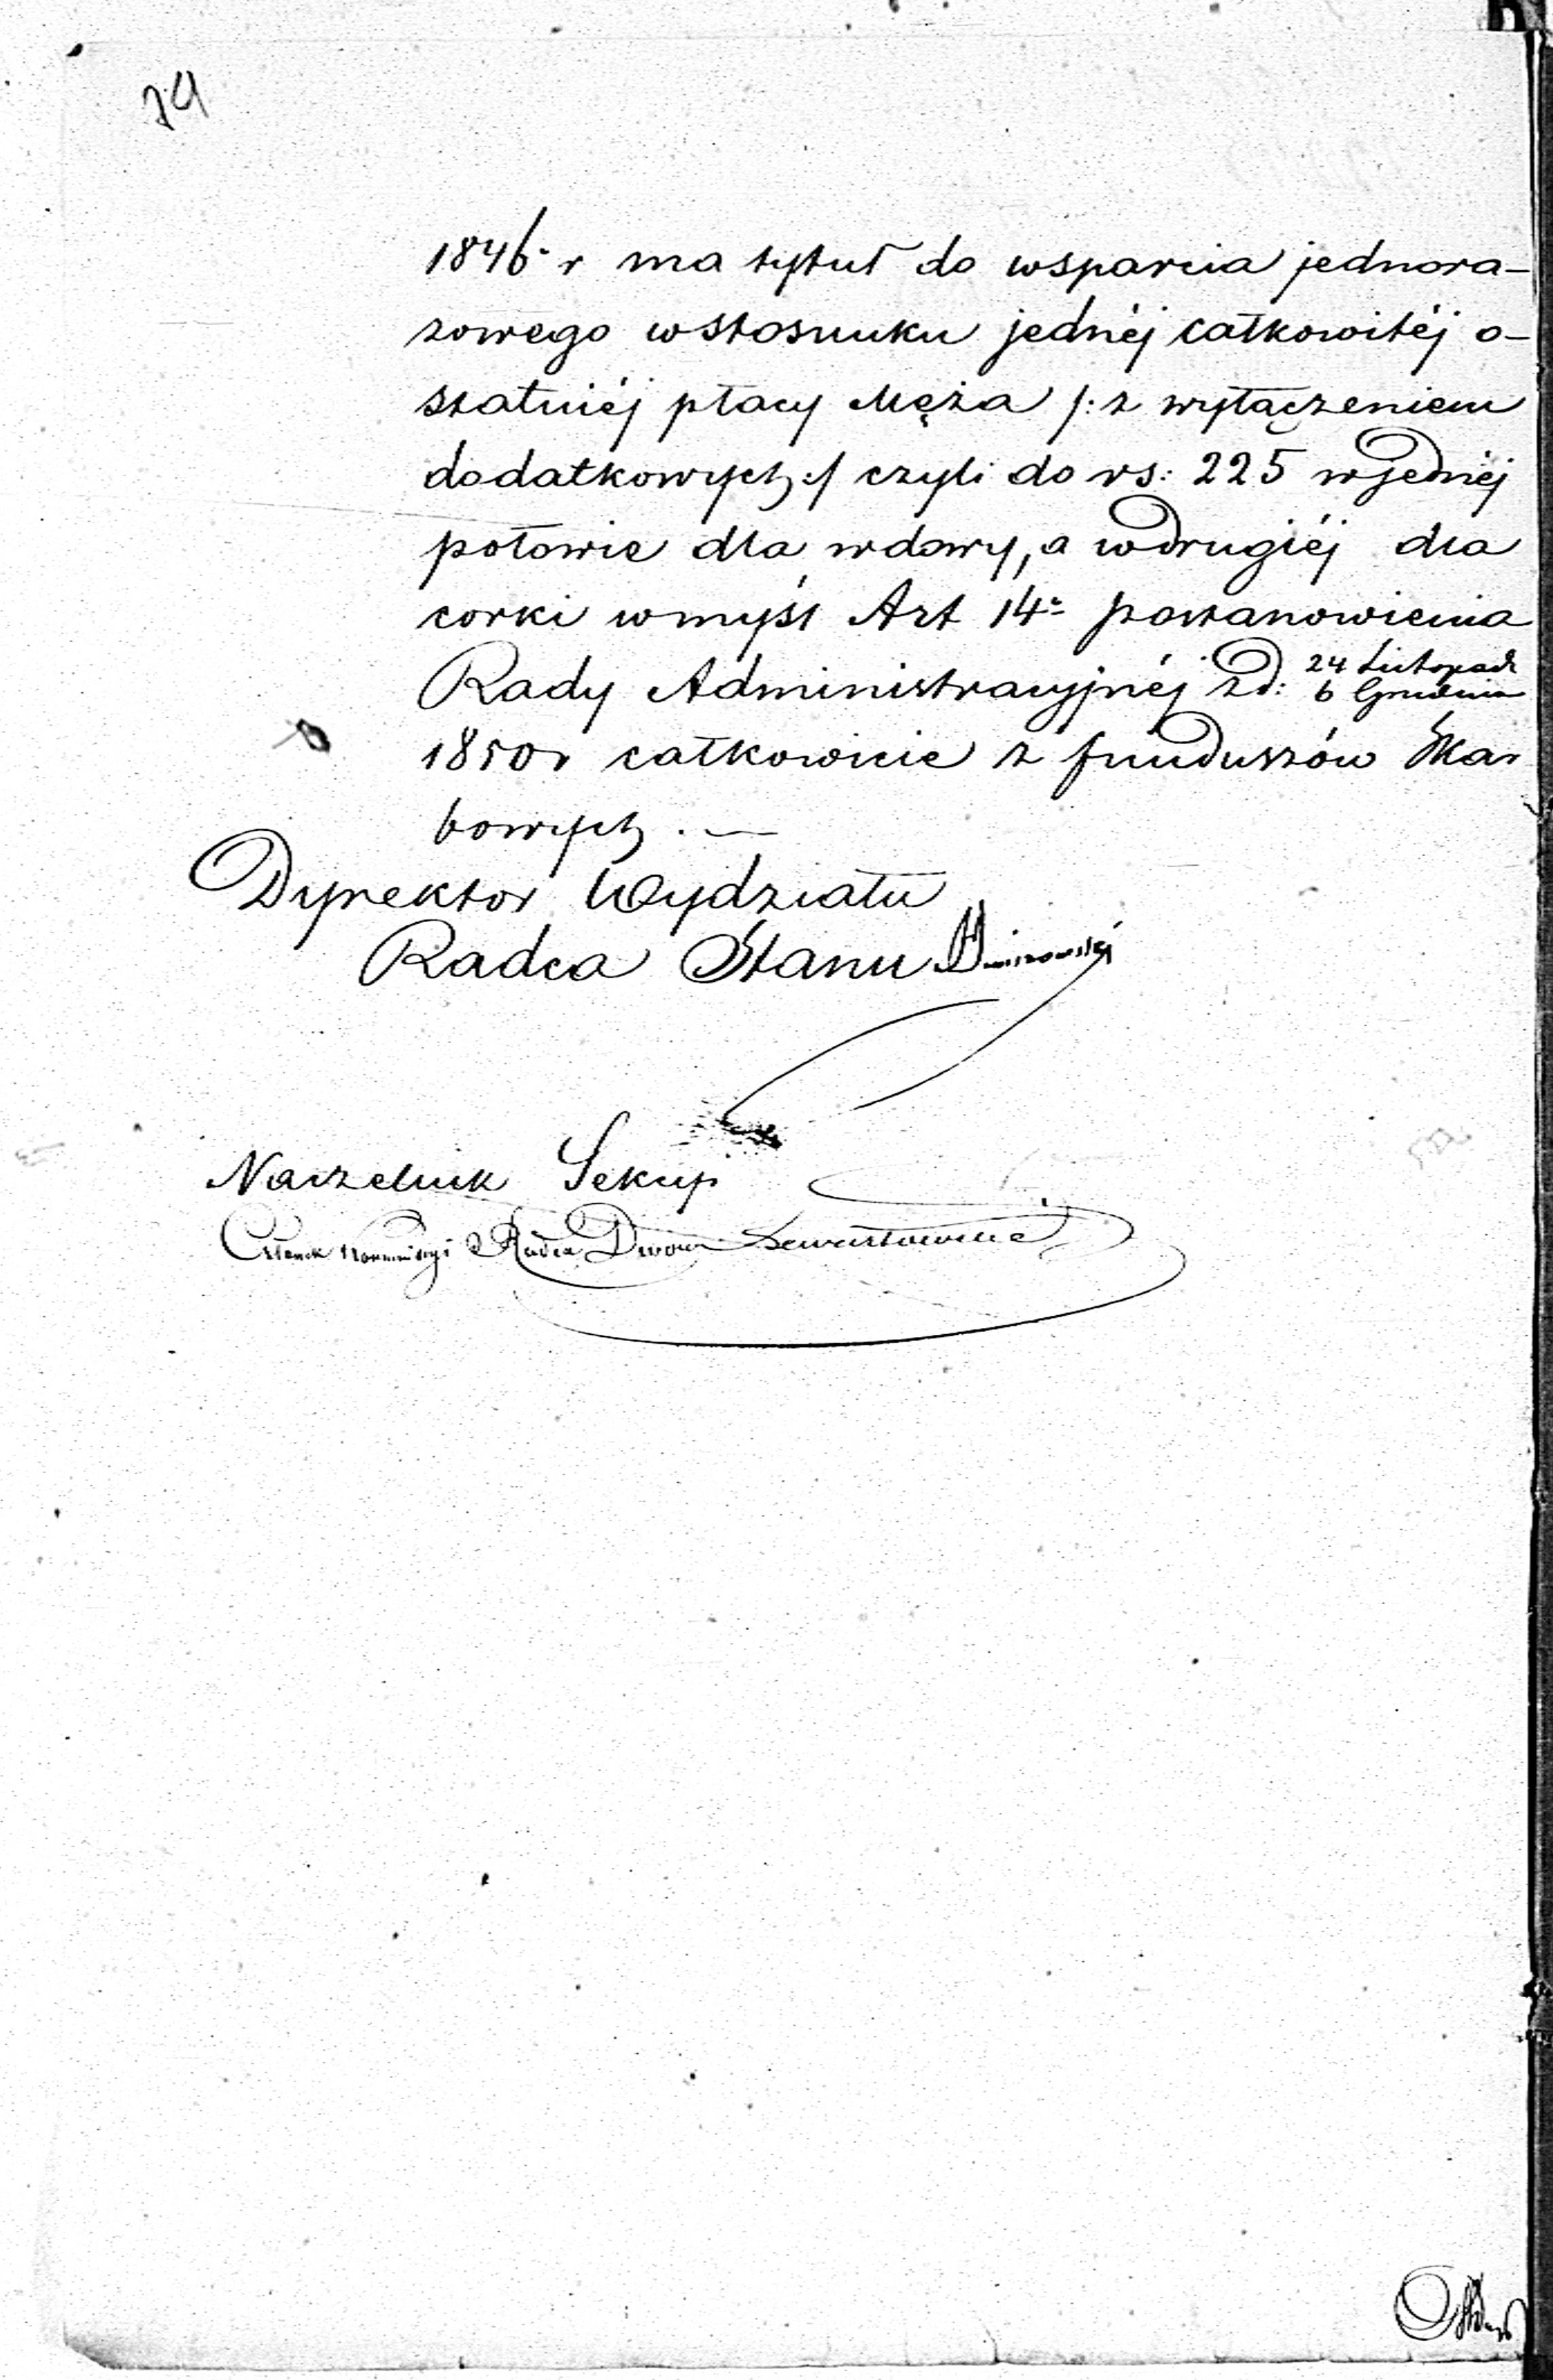 74
1846 r ma tytuł do wsparcia jednora-
zowego w stosunku jednéj całkowitéj o-
statniéj płacy Męża /: z wyłączeniem
dodatkowych :/ czyli do rs: 225 w jednéj
połowie dla wdowy, a w drugiéj dla
corki w myśl Art 14 postanowienia
Rady Administracyjnéj z d: 24 Listopada
6 Grudnia
1850 r całkowicie z funduszów Skar
bowych . —
Dyrektor Wydziału
Radca Stanu
Naczelnik Sekcyi
Członek Kommissyi Radca Dworu